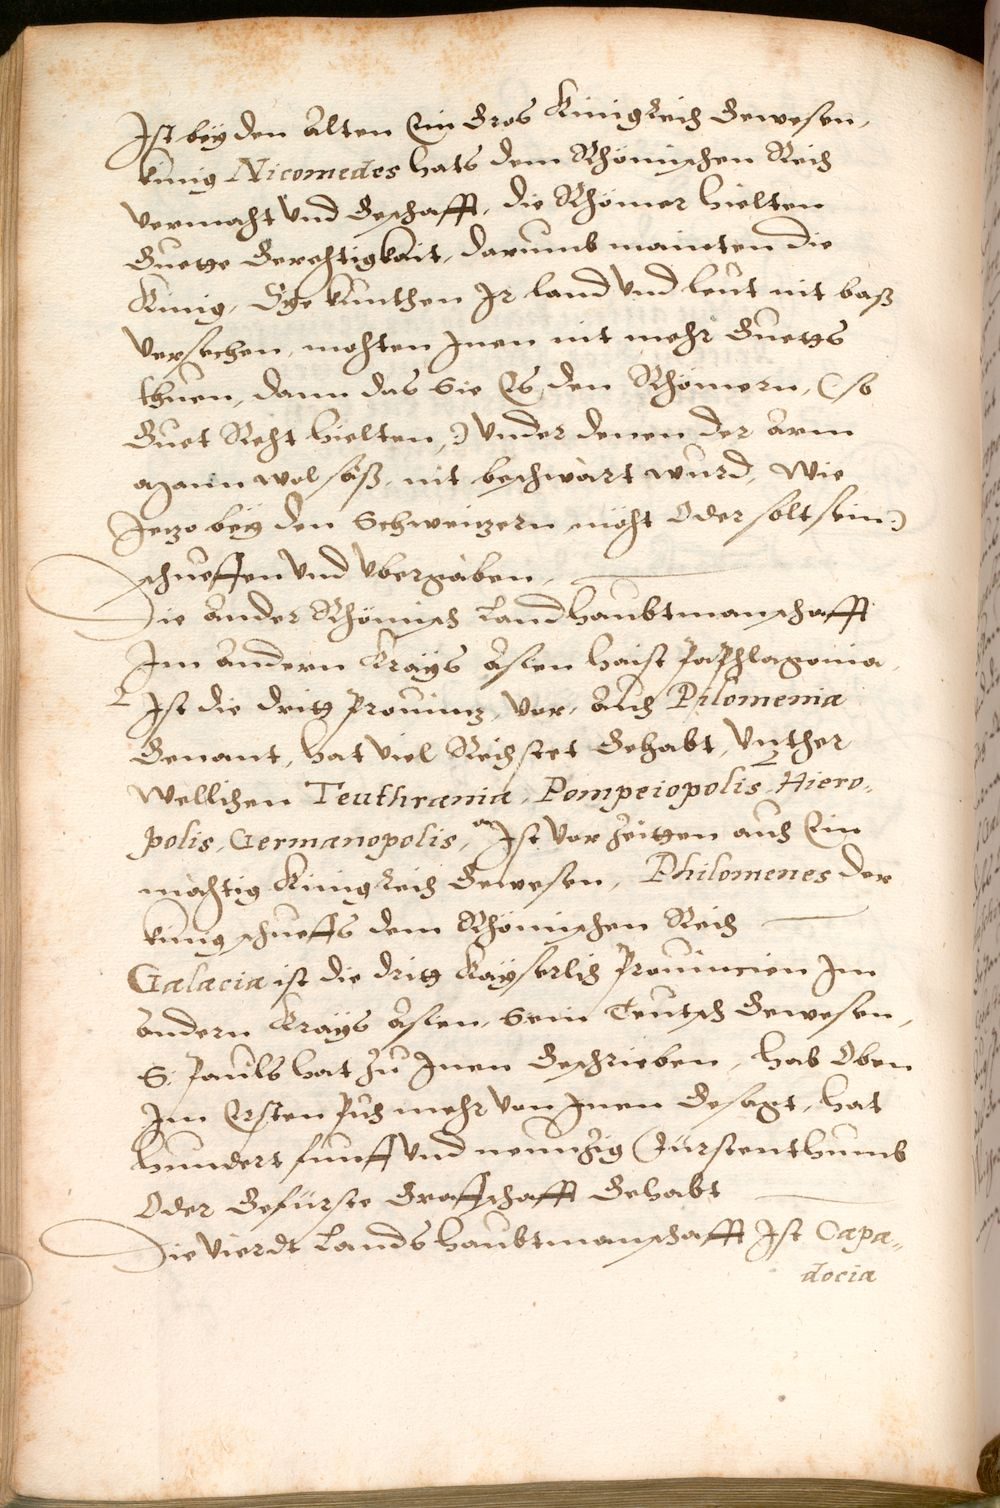 Ist bey den alten Ein Gros Kinigkreich Gewesen,
kinig Nicomedes hats dem Rhömischen Reich
vermacht Vnd Geschafft, die Rhömer hielten
Guette Gerechtigkait, darumb mainten die
Kinig, Sye kunthen Ir land Vnd leut nit baß
Versechen, mochten Inen nit mehr Guetts
thuen, dann das Sie Es den Rhömern, (: so
Guet Recht hielten,:) Vnder denen der arm
Mann wol saß, nit beschwärt wurd, Wie
Jezo bey den Schweitzern möcht Oder solt sein:)
schueffen Vnd Vbergaben,
Die ander Rhömisch Landhaubtmanschafft
Im andern Krayß Asien haist Paphlagonia,
Ist die dritt Prouintz, Vor, auch Pilomenia
Genant, hat viel Reichstet Gehabt, Vnther
Wellichen Teuthrania, Pompeiopolis, Hiero,,
polis, Germanopolis, Ist Vor Zeitten auch Ein
mächtig Kinigkreich Gewesen, Philomenes der
kinig schueffs dem Rhömischen Reich
Galacia ist die dritt Kayserlich Prouincien Im
andern Krayß Asien, Sein Teutsch Gewesen,
S. Pauls hat zu Inen Geschrieben, hab Oben
Im Ersten Puch mehr Von Inen Gesagt, hat
hundert funff Vnd neunzig Fürstenthumb
Oder Gefürste Graffschafft Gehabt
Die Vierdt Landshaubtmanschafft Ist Capa,,
docia